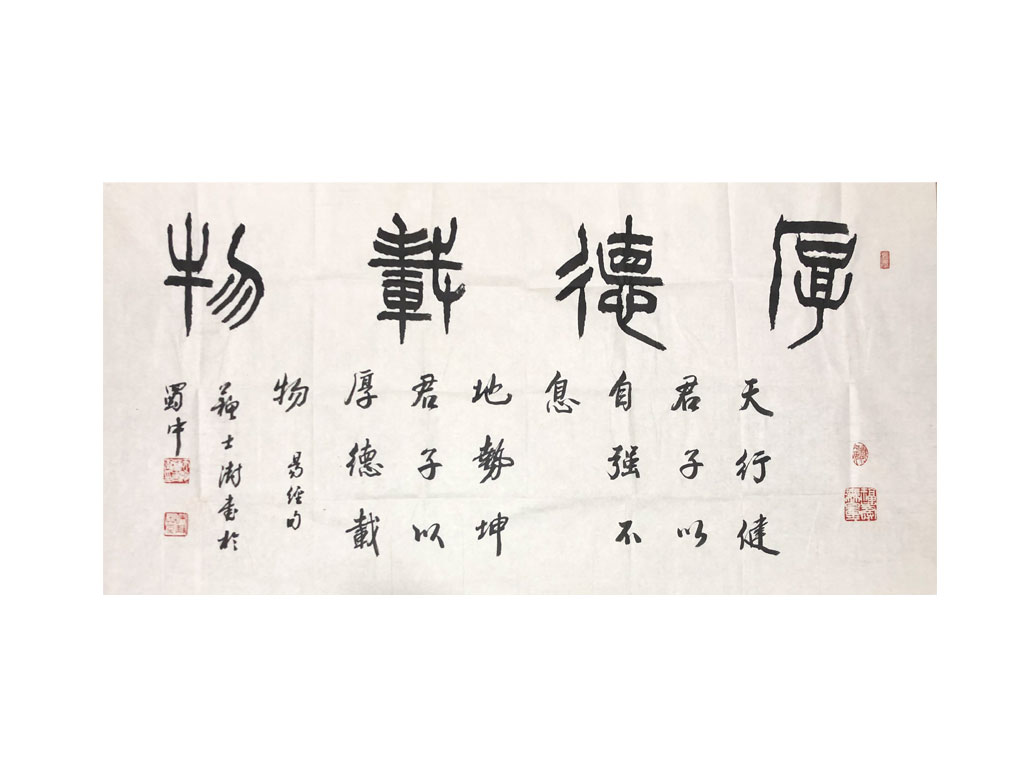 厚德載物
天行健
君子以
自强不
息
地勢坤
君子以
厚德載
物
易経句
蘇士澍書於
蜀中